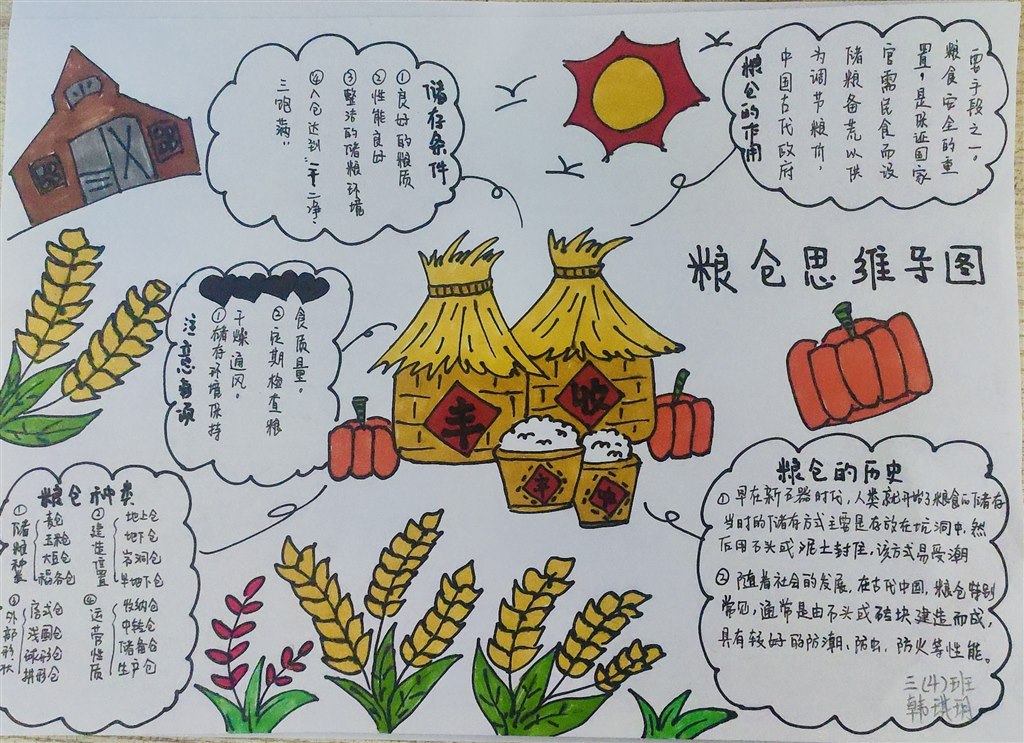 粮仓思维导图
储存条件
①良好的粮质
②性能良好
③整洁的储粮环境
④入仓达到“一干二净、
三饱满”
粮仓的作用
中国古代政府
为调节粮价,
储粮备荒以供
官需民食而设
置,是保证国家
粮食安全的重
要手段之一。
注意事项
①储存环境保持
干燥通风。
②定期检查粮
食质量。
丰
收
丰
粮仓种类
①储粮种类
麦仓
玉粒仓
大豆仓
稻谷仓
②建造位置
地上仓
地下仓
岩洞仓
半地下仓
③外部形状
房式仓
浅圆仓
球形仓
拱形仓
④运营性质
收纳仓
中转仓
储备仓
生产仓
粮仓的历史
①早在新石器时代,人类就开始了粮食的储存
当时的储存方式主要是存放在坑洞中,然
后用石头或泥土封住,该方式易受潮
②随着社会的发展,在古代中国,粮仓特别
常见,通常是由石头或砖块建造而成,
具有较好的防潮、防虫、防火等性能。
三(4)班
韩琪玥